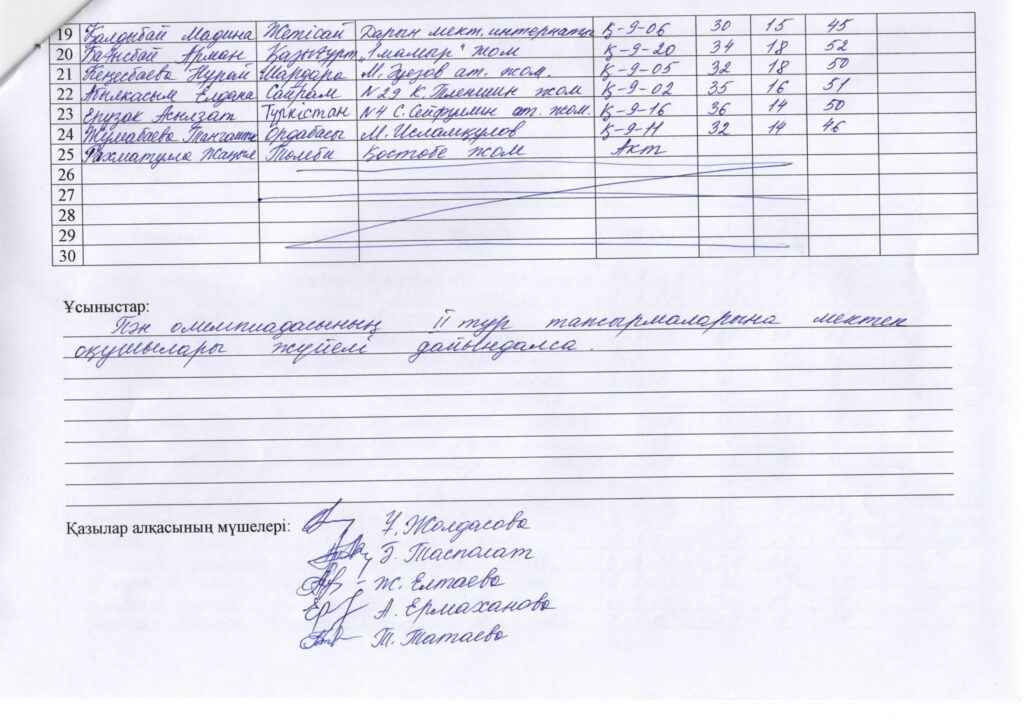 19 Қалдыбай Мадина Жетісай Дарын мект. интернаты Қ-9-06 30 15 45
20 Арман Қазығурт "1 мамыр" жом Қ-9-20 34 18 52
21 Кеңесбаева Нұрай Шардара М. Әуезов ат. жом. Қ-9-05 32 18 50
22 Абылкасым Елдана Сайрам N 29 К. Пленшин жом Қ-9-02 35 16 51
23 Ерузак Асылзат Түркістан N4 С. Сейфуллин ат. жом. Қ-9-16 36 14 50
24 Жумабаева Ордабасы М. Исламқулов Қ-9-11 32 14 46
25 Рахматула Төлеби Қостөбе жом Акт
26
27
28
29
30
Ұсыныстар:
Пән олимпиадасының II тур тапсырмаларына мектеп
оқушылары жүйелі дайындалса.
Қазылар алқасының мүшелері: Ұ. Жолдасова
Ә. Тасполат
Ж. Елтаева
А. Ермаханова
Т. Татаева